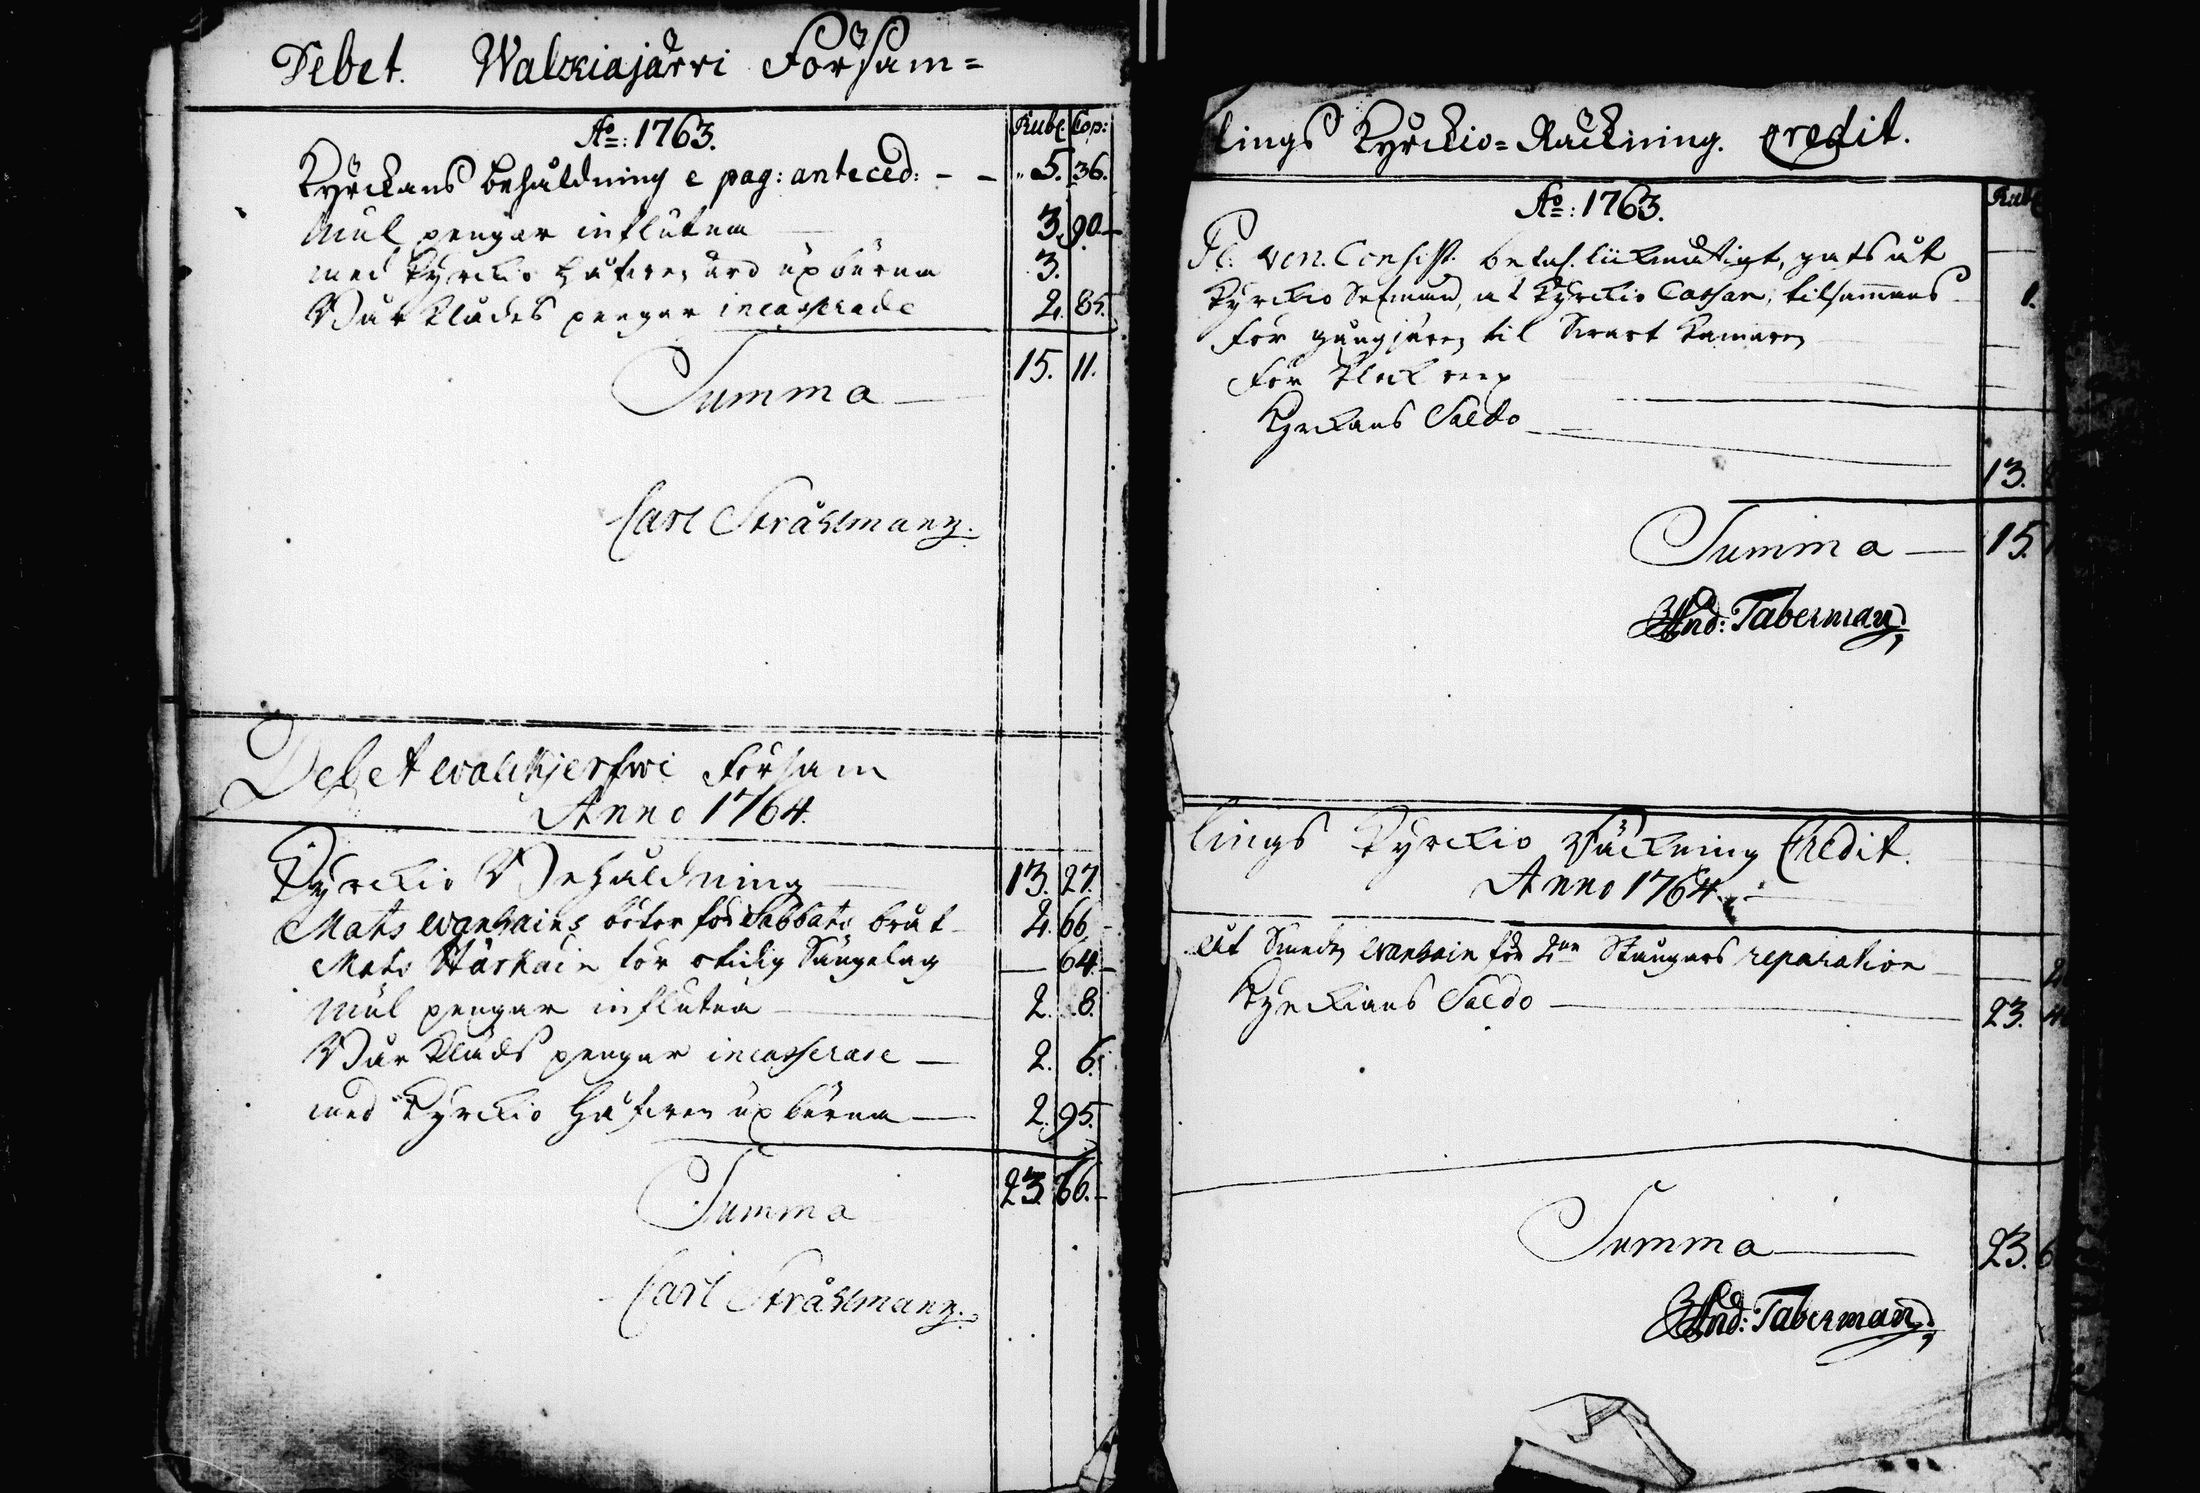 Debet. Walkiajärvi Försam=
Ao: 1763. Rubl. Cop:
Kyrckans behåldning e pag: anteced: - - 5. 36.
Mul pengar influtna 3. 90.
med Kyrckio håfwen upburna 3.
Bår Klädes pengar incasserade 2. 85.
Summa 15. 11.
Carl Stråhlmann.
Debet Walckjerfwi Försam
Anno 1764.
Kyrckio Behåldning 13. 27.
Mats böter för Sabbats bråt 2. 66
Mats för otidig Sängelag 64.
Mul pengar influtna 2. 8.
Bår Kläds pengar incasserade 2. 6.
med Kyrckio Håfwen upburna 2. 95.
Summa 23. 66.
Carl Stråhlmann.
lings Kyrckio=Räckning. Credit.
Ao: 1763. Rubl
Ven. Consist. likmätigt, åt
Kyrckio ut Kyrckio Cassan, tilsammans 1.
För gångjärn til Swart Kamaren
För Klock reep
Kyrckans Saldo
13.
Summa 15.
And: Taberman
lings Kyrckio Räckning Credit.
Anno 1764.
Åt Smeden för Stängars reparation 2
Kyrckians Saldo 23.
Summa 23. 6
And: Taberman